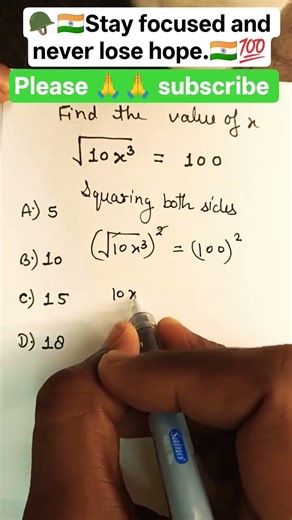 🪖🇮🇳Stay focused and
never lose hope.🇮🇳💯
Please 🙏 🙏 subscribe
Find the value of x
√10x³ = 100
Squaring both sides
A.) 5
(√10x³)² = (100)²
B.) 10
C.) 15
10x
D.) 18
Saino